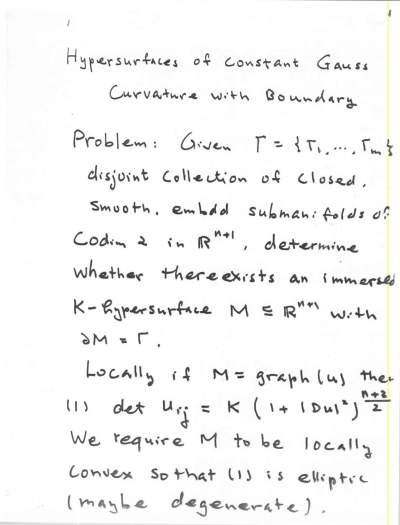 1
1
Hypersurfaces of Constant Gauss
Curvature with Boundary
Problem: Given Γ = {Γ₁, ..., Γₘ}
disjoint collection of closed,
smooth, embdd submanifolds of
Codim 2 in ℝⁿ⁺¹, determine
whether there exists an immersed
K-hypersurface M ⊆ ℝⁿ⁺¹ with
∂M = Γ.
Locally if M = graph (u) then
(1) det uᵢⱼ = K (1 + |Du|²)^{\frac{n+2}{2}}
We require M to be locally
convex so that (1) is elliptic
(maybe degenerate).